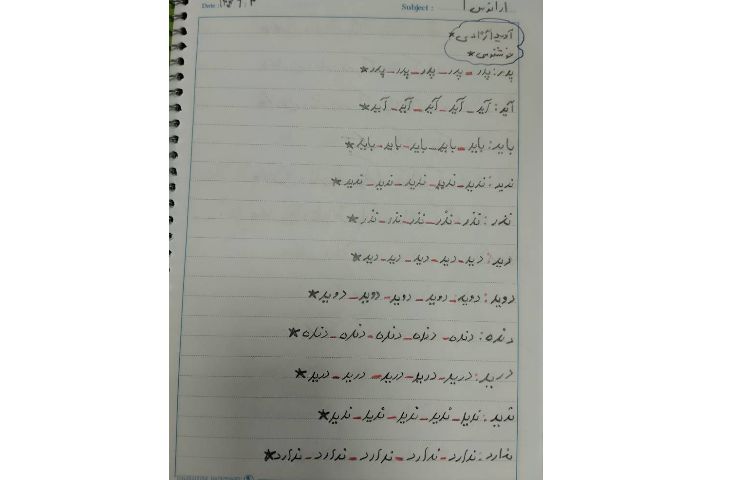 Date: ۱۴۰۲/۹/۳ Subject:
خوشنویسی*
پدر: پدر - پدر - پدر - پدر - پدر*
آید: آید - آید - آید - آید - آید*
باید: باید - باید - باید - باید - باید*
ندید: ندید - ندید - ندید - ندید - ندید*
نذر: نذر - نذر - نذر - نذر - نذر*
دید: دید - دید - دید - دید - دید*
دوید: دوید - دوید - دوید - دوید - دوید*
دنده: دنده - دنده - دنده - دنده - دنده*
درید: درید - درید - درید - درید - درید*
ندید: ندید - ندید - ندید - ندید - ندید*
ندارد: ندارد - ندارد - ندارد - ندارد - ندارد*